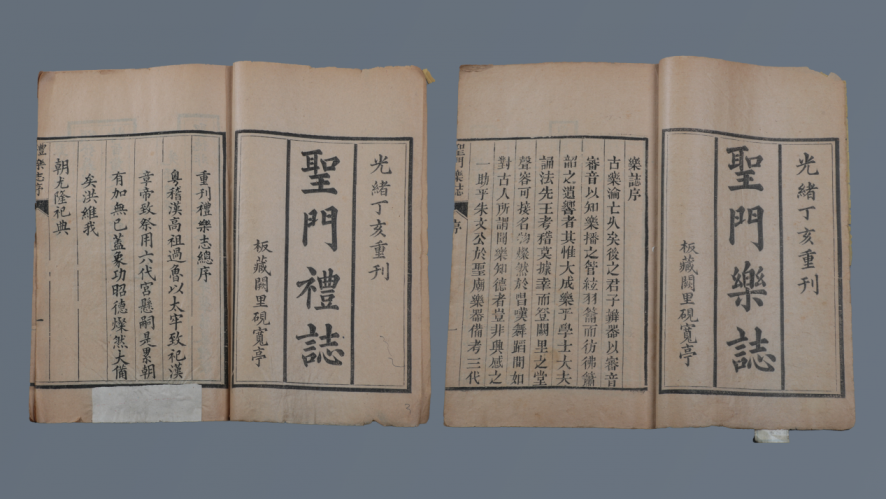 光緒丁亥重刊
聖門禮誌
板藏闕里硯寬亭
重刊禮樂志總序
粵稽漢高祖過魯以太宰致祀漢
章帝致祭用六代宮懸嗣是累朝
有加無已蓋象功昭德燦然大備
矣洪維我
朝尤隆祀典
禮樂志序
一
光緒丁亥重刊
聖門樂誌
板藏闕里硯寬亭
樂誌序
古樂淪亡久矣後之君子辨器以審音
審音以知樂播之管絃羽籥而彷彿簫
韶之遺響者其惟大成樂乎學士大夫
誦法先王考稽莫據幸而登闕里之堂
聲容可接名物燦然於唱嘆舞蹈間如
對古人所謂聞樂知德者豈非興感之
一助乎朱文公於聖廟樂器備考三代
聖門樂誌
序